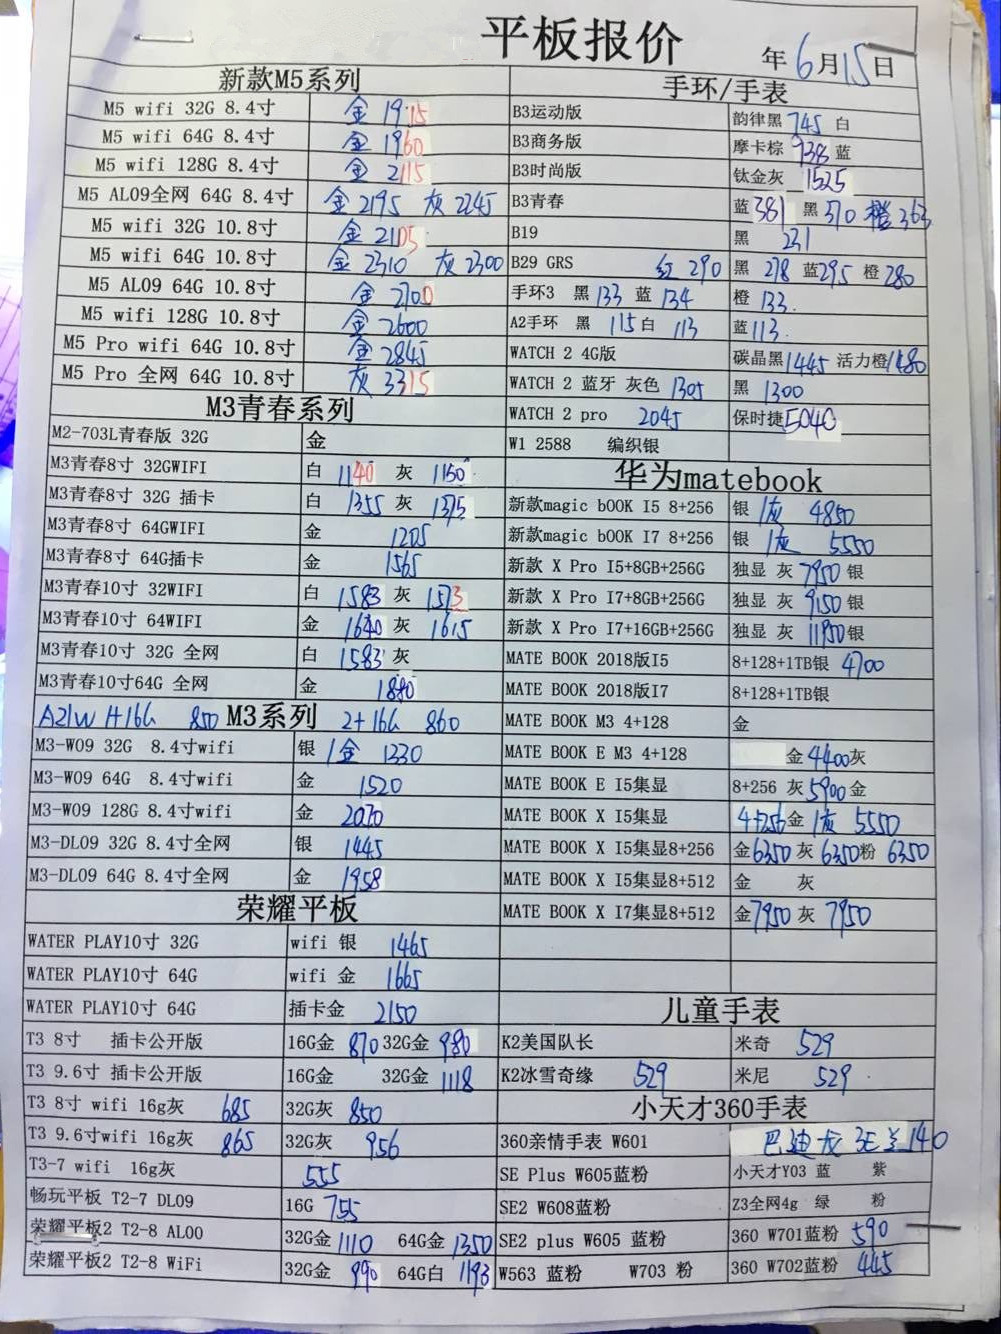 平板报价
年6月15日
新款M5系列
M5 wifi 32G 8.4寸 金 1915
M5 wifi 64G 8.4寸 金 1960
M5 wifi 128G 8.4寸 金 2115
M5 AL09全网 64G 8.4寸 金 2195 灰 2245
M5 wifi 32G 10.8寸 金 2105
M5 wifi 64G 10.8寸 金 2310 灰 2300
M5 AL09 64G 10.8寸 金 2700
M5 wifi 128G 10.8寸 金 2600
M5 Pro wifi 64G 10.8寸 金 2845
M5 Pro 全网 64G 10.8寸 灰 3315
M3青春系列
M2-703L青春版 32G 金
M3青春8寸 32GWIFI 白 1140 灰 1150
M3青春8寸 32G 插卡 白 1355 灰 1375
M3青春8寸 64GWIFI 金 1205
M3青春8寸 64G插卡 金 1565
M3青春10寸 32WIFI 白 1583 灰 1573
M3青春10寸 64WIFI 金 1640 灰 1615
M3青春10寸 32G 全网 白 1583 灰
M3青春10寸64G 全网 金 1880
A21W 1+16G 850 M3系列 2+16G 860
M3-W09 32G 8.4寸wifi 银 1金 1330
M3-W09 64G 8.4寸wifi 金 1520
M3-W09 128G 8.4寸wifi 金 2070
M3-DL09 32G 8.4寸全网 银 1445
M3-DL09 64G 8.4寸全网 金 1958
荣耀平板
WATER PLAY10寸 32G wifi 银 1465
WATER PLAY10寸 64G wifi 金 1665
WATER PLAY10寸 64G 插卡金 2150
T3 8寸 插卡公开版 16G金 870 32G金 980
T3 9.6寸 插卡公开版 16G金 32G金 1118
T3 8寸 wifi 16g灰 685 32G灰 850
T3 9.6寸wifi 16g灰 865 32G灰 956
T3-7 wifi 16g灰 555
畅玩平板 T2-7 DL09 16G 755
荣耀平板2 T2-8 AL00 32G金 1110 64G金 1350
荣耀平板2 T2-8 WiFi 32G金 990 64G白 1193
手环/手表
B3运动版 韵律黑 745 白
B3商务版 摩卡棕 938 蓝
B3时尚版 钛金灰 1525
B3青春 蓝 381 黑 370 橙 363
B19 黑 231
B29 GRS 红 290 黑 278 蓝295 橙 280
手环3 黑 133 蓝 134 橙 133
A2手环 黑 115 白 113 蓝113
WATCH 2 4G版 碳晶黑1445 活力橙1480
WATCH 2 蓝牙 灰色 1305 黑 1300
WATCH 2 pro 2045 保时捷5040
W1 2588 编织银
华为matebook
新款magic bOOK I5 8+256 银 1灰 4850
新款magic bOOK I7 8+256 银 1灰 5550
新款 X Pro I5+8GB+256G 独显 灰 7950 银
新款 X Pro I7+8GB+256G 独显 灰 9150 银
新款 X Pro I7+16GB+256G 独显 灰 11950银
MATE BOOK 2018版I5 8+128+1TB银 4700
MATE BOOK 2018版I7 8+128+1TB银
MATE BOOK M3 4+128 金
MATE BOOK E M3 4+128 金4400灰
MATE BOOK E I5集显 8+256 灰5900金
MATE BOOK X I5集显 4+256金 1灰 5550
MATE BOOK X I5集显8+256 金6350灰 6350粉 6350
MATE BOOK X I5集显8+512 金 灰
MATE BOOK X I7集显8+512 金7950 灰 7950
儿童手表
K2美国队长 米奇 529
K2冰雪奇缘 529 米尼 529
小天才360手表
360亲情手表 W601 巴迪龙 3E 140
SE Plus W605蓝粉 小天才Y03 蓝 紫
SE2 W608蓝粉 Z3全网4g 绿 粉
SE2 plus W605 蓝粉 360 W701蓝粉 590
W563 蓝粉 W703 粉 360 W702蓝粉 445